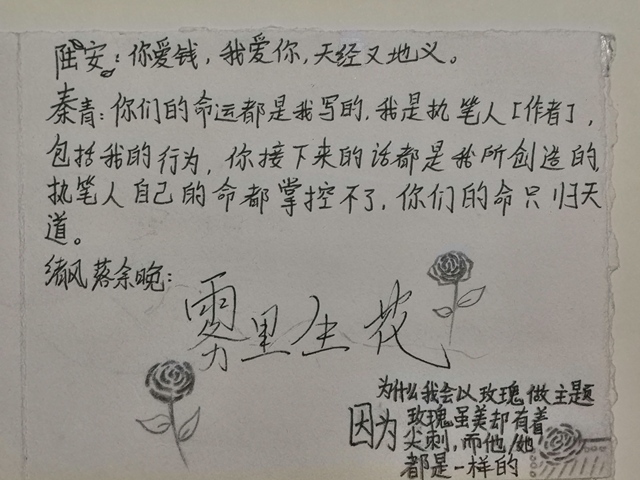 陆安：你爱钱，我爱你，天经又地义。
秦青：你们的命运都是我写的，我是执笔人［作者］，
包括我的行为，你接下来的话都是我所创造的，
执笔人自己的命都掌控不了，你们的命只归天
道。
绪风落余晚：
雾里生花
为什么我会以玫瑰做主题
因为玫瑰虽美却有着
尖刺，而他/她
都是一样的